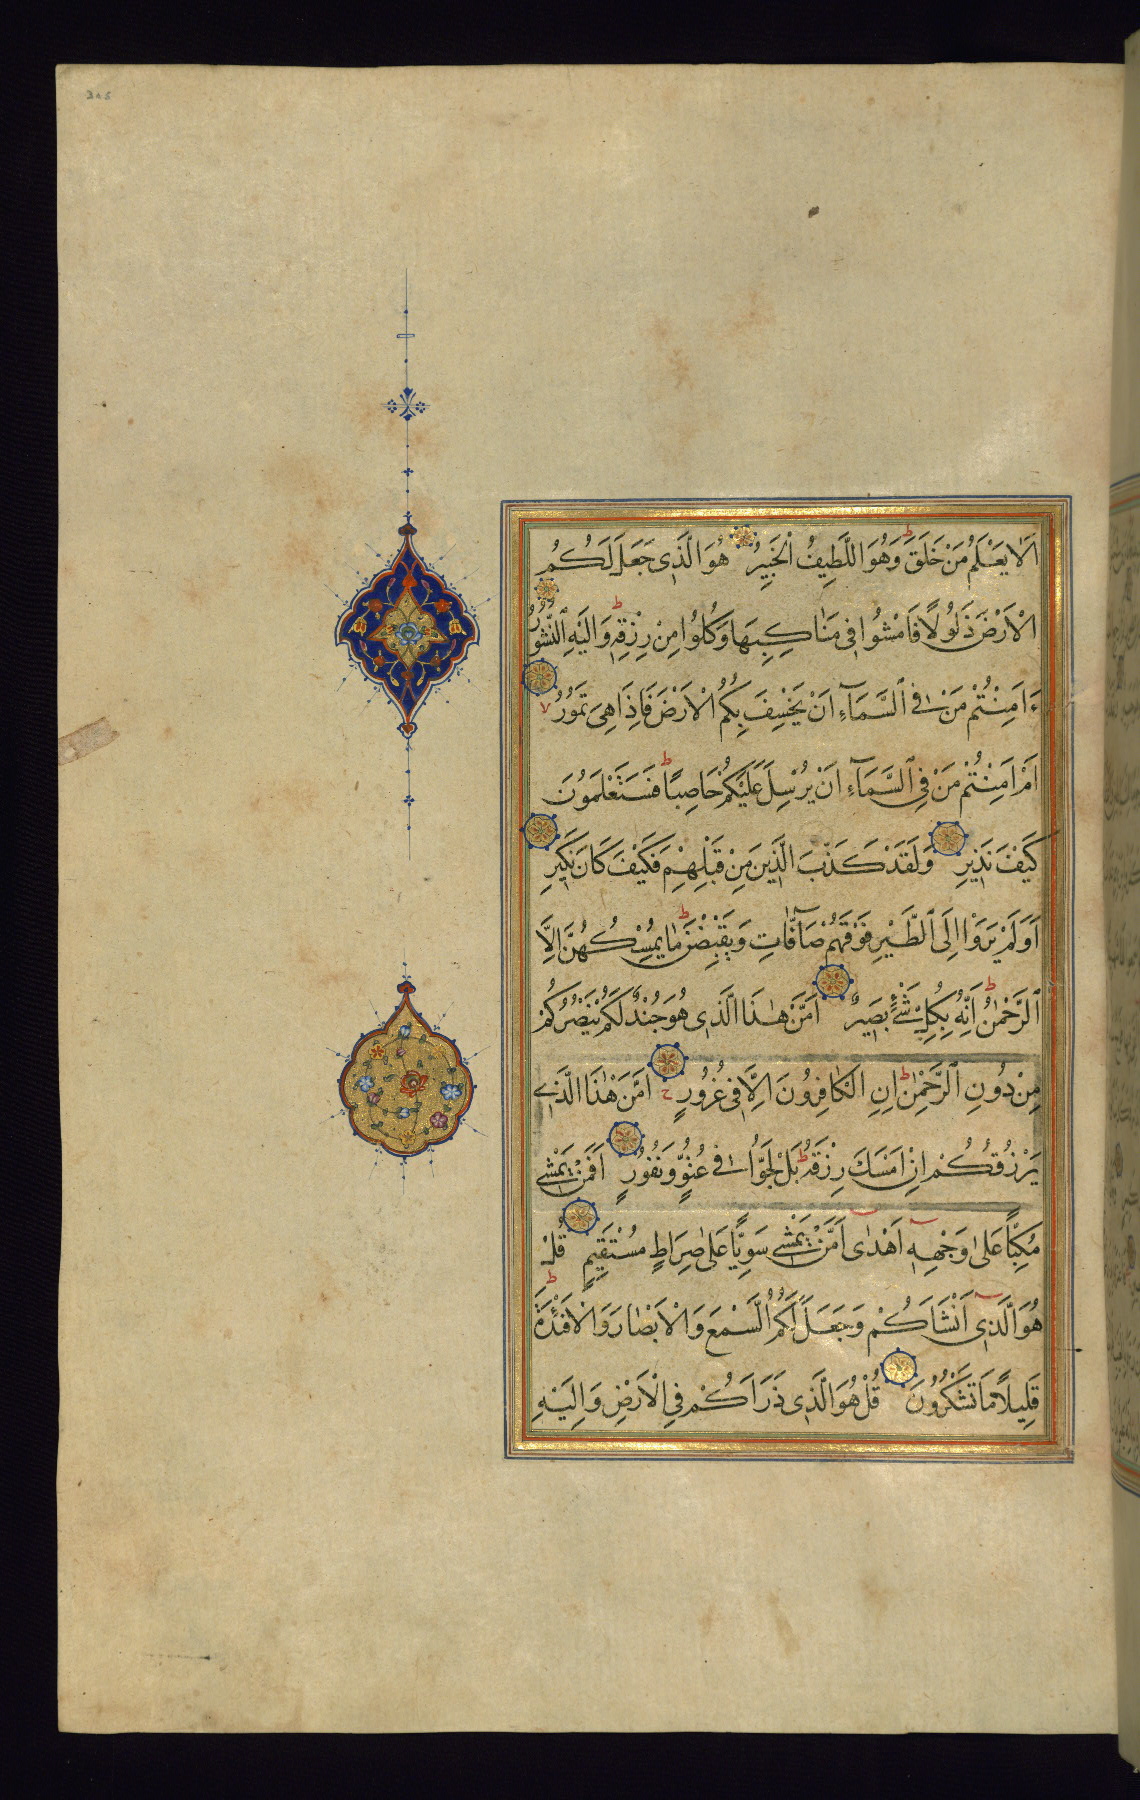 اَلَا يَعْلَمُ مَنْ خَلَقَ وَهُوَ اللَّطِيفُ الْخَبِيرُ هُوَ الَّذِى جَعَلَ لَكُمُ
الْاَرْضَ ذَلُولًا فَامْشُوا فِى مَنَاكِبِهَا وَكُلُوا مِنْ رِزْقِهِ وَاِلَيْهِ النُّشُورُ
ءَاَمِنْتُمْ مَنْ فِى السَّمَآءِ اَنْ يَخْسِفَ بِكُمُ الْاَرْضَ فَاِذَا هِىَ تَمُورُ
اَمْ اَمِنْتُمْ مَنْ فِى السَّمَآءِ اَنْ يُرْسِلَ عَلَيْكُمْ حَاصِبًا فَسَتَعْلَمُونَ
كَيْفَ نَذِيرِ وَلَقَدْ كَذَّبَ الَّذِينَ مِنْ قَبْلِهِمْ فَكَيْفَ كَانَ نَكِيرِ
اَوَلَمْ يَرَوْا اِلَى الطَّيْرِ فَوْقَهُمْ صَآفَّاتٍ وَيَقْبِضْنَ مَا يُمْسِكُهُنَّ اِلَّا
الرَّحْمٰنُ اِنَّهُ بِكُلِّ شَىْءٍ بَصِيرٌ اَمَّنْ هٰذَا الَّذِى هُوَ جُنْدٌ لَكُمْ يَنْصُرُكُمْ
مِنْ دُونِ الرَّحْمٰنِ اِنِ الْكَافِرُونَ اِلَّا فِى غُرُورٍ اَمَّنْ هٰذَا الَّذِى
يَرْزُقُكُمْ اِنْ اَمْسَكَ رِزْقَهُ بَلْ لَجُّوا فِى عُتُوٍّ وَنُفُورٍ اَفَمَنْ يَمْشِى
مُكِبًّا عَلٰى وَجْهِهِ اَهْدٰى اَمَّنْ يَمْشِى سَوِيًّا عَلٰى صِرَاطٍ مُسْتَقِيمٍ قُلْ
هُوَ الَّذِى اَنْشَاَكُمْ وَجَعَلَ لَكُمُ السَّمْعَ وَالْاَبْصَارَ وَالْاَفْئِدَةَ
قَلِيلًا مَا تَشْكُرُونَ قُلْ هُوَ الَّذِى ذَرَاَكُمْ فِى الْاَرْضِ وَاِلَيْهِ